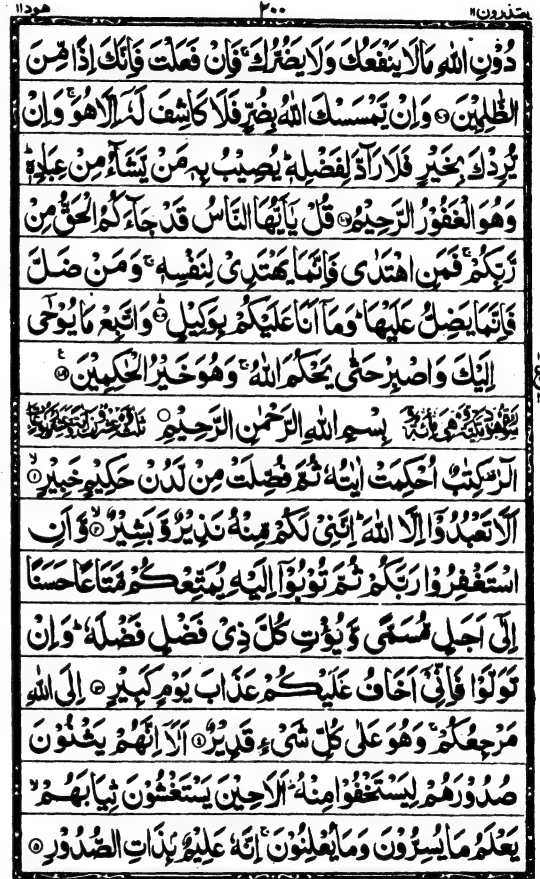 يعتذرون ١١ ٢٠٠ هود ١١
دُوْنِ اللّٰهِ مَا لَا يَنْفَعُكَ وَلَا يَضُرُّكَ ۚ فَاِنْ فَعَلْتَ فَاِنَّكَ اِذًا مِّنَ
الظّٰلِمِيْنَ ۝١٠٦ وَاِنْ يَّمْسَسْكَ اللّٰهُ بِضُرٍّ فَلَا كَاشِفَ لَهٗۤ اِلَّا هُوَ ۚ وَاِنْ
يُّرِدْكَ بِخَيْرٍ فَلَا رَآدَّ لِفَضْلِهٖ ؕ يُصِيْبُ بِهٖ مَنْ يَّشَآءُ مِنْ عِبَادِهٖ ؕ
وَهُوَ الْغَفُوْرُ الرَّحِيْمُ ۝١٠٧ قُلْ يٰۤاَيُّهَا النَّاسُ قَدْ جَآءَكُمُ الْحَقُّ مِنْ
رَّبِّكُمْ ۚ فَمَنِ اهْتَدٰى فَاِنَّمَا يَهْتَدِىْ لِنَفْسِهٖ ۚ وَمَنْ ضَلَّ
فَاِنَّمَا يَضِلُّ عَلَيْهَا ؕ وَمَاۤ اَنَا عَلَيْكُمْ بِوَكِيْلٍ ۝١٠٨ وَاتَّبِعْ مَا يُوْحٰۤى
اِلَيْكَ وَاصْبِرْ حَتّٰى يَحْكُمَ اللّٰهُ ۚ وَهُوَ خَيْرُ الْحٰكِمِيْنَ ۝١٠٩
بِسْمِ اللّٰهِ الرَّحْمٰنِ الرَّحِيْمِ
الٓرٰ ۚ كِتٰبٌ اُحْكِمَتْ اٰيٰتُهٗ ثُمَّ فُصِّلَتْ مِنْ لَّدُنْ حَكِيْمٍ خَبِيْرٍ ۝١
اَلَّا تَعْبُدُوْۤا اِلَّا اللّٰهَ ؕ اِنَّنِىْ لَكُمْ مِّنْهُ نَذِيْرٌ وَّبَشِيْرٌ ۝٢ وَّاَنِ
اسْتَغْفِرُوْا رَبَّكُمْ ثُمَّ تُوْبُوْۤا اِلَيْهِ يُمَتِّعْكُمْ مَّتَاعًا حَسَنًا
اِلٰۤى اَجَلٍ مُّسَمًّى وَّيُؤْتِ كُلَّ ذِىْ فَضْلٍ فَضْلَهٗ ؕ وَاِنْ
تَوَلَّوْا فَاِنِّىْۤ اَخَافُ عَلَيْكُمْ عَذَابَ يَوْمٍ كَبِيْرٍ ۝٣ اِلَى اللّٰهِ
مَرْجِعُكُمْ ۚ وَهُوَ عَلٰى كُلِّ شَىْءٍ قَدِيْرٌ ۝٤ اَلَاۤ اِنَّهُمْ يَثْنُوْنَ
صُدُوْرَهُمْ لِيَسْتَخْفُوْا مِنْهُ ؕ اَلَا حِيْنَ يَسْتَغْشُوْنَ ثِيَابَهُمْ ۙ
يَعْلَمُ مَا يُسِرُّوْنَ وَمَا يُعْلِنُوْنَ ۚ اِنَّهٗ عَلِيْمٌۢ بِذَاتِ الصُّدُوْرِ ۝٥